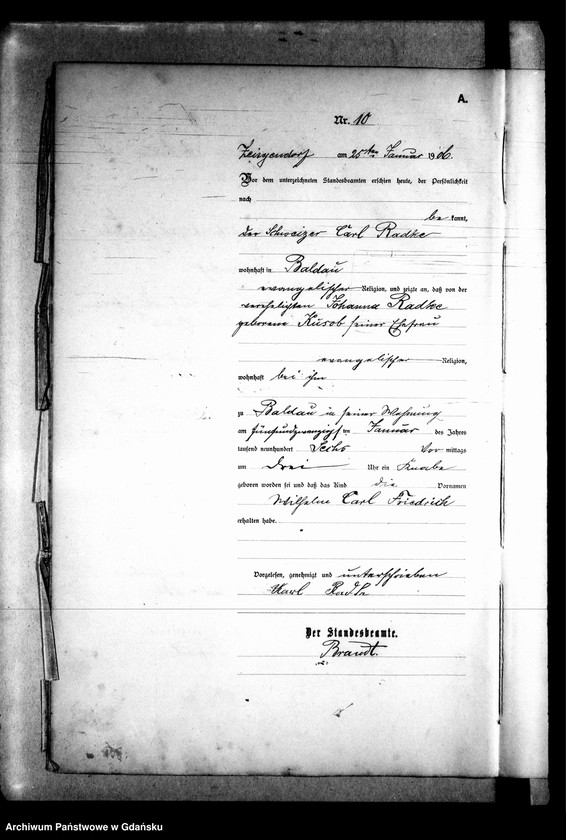 A.
Nr. 10
Zeisgendorf am 25ten Januar 1906.
Vor dem unterzeichneten Standesbeamten erschien heute, der Persönlichkeit
nach
be kannt,
der Schweizer Carl Radke
wohnhaft in Baldau
evangelischer Religion, und zeigte an, daß von der
verehelichten Johanna Radke
geborene Kusob seiner Ehefrau
evangelischer Religion,
wohnhaft bei ihm
zu Baldau in seiner Wohnung
am fünfundzwanzigsten Januar des Jahres
tausend neunhundert Sechs Vor mittags
um drei Uhr ein Knabe
geboren worden sei und daß das Kind die Vornamen
Wilhelm Carl Friedrich
erhalten habe.
Vorgelesen, genehmigt und unterschrieben
Karl Radke
Der Standesbeamte.
Brandt.
Archiwum Państwowe w Gdańsku